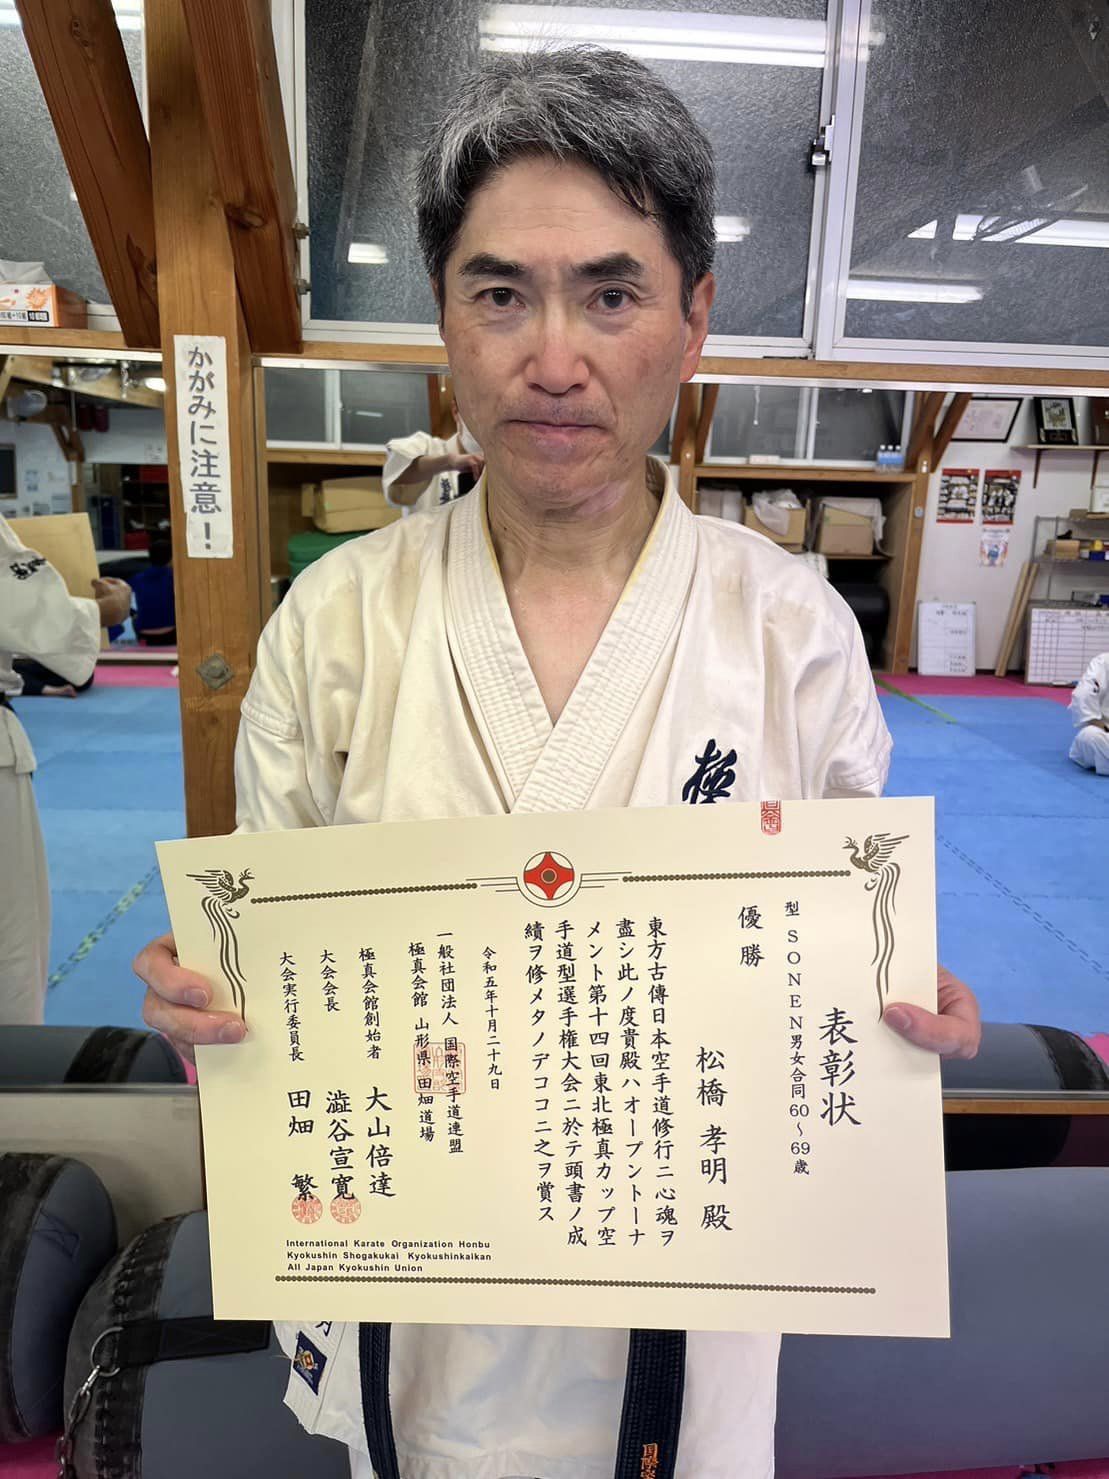 かがみに注意！
極
表彰状
型 SONEN男女合同60～69歳
優勝
松橋 孝明 殿
東方古傳日本空手道修行ニ心魂ヲ
盡シ此ノ度貴殿ハオープントーナ
メント第十四回東北極真カップ空
手道型選手権大会ニ於テ頭書ノ成
績ヲ修メタノデココニ之ヲ賞ス
令和五年十月二十九日
一般社団法人 国際空手道連盟
極真会館 山形県田畑道場
極真会館創始者 大山倍達
大会会長 澁谷宣寛
大会実行委員長 田畑 繁
International Karate Organization Honbu
Kyokushin Shogakukai Kyokushinkaikan
All Japan Kyokushin Union
国際空